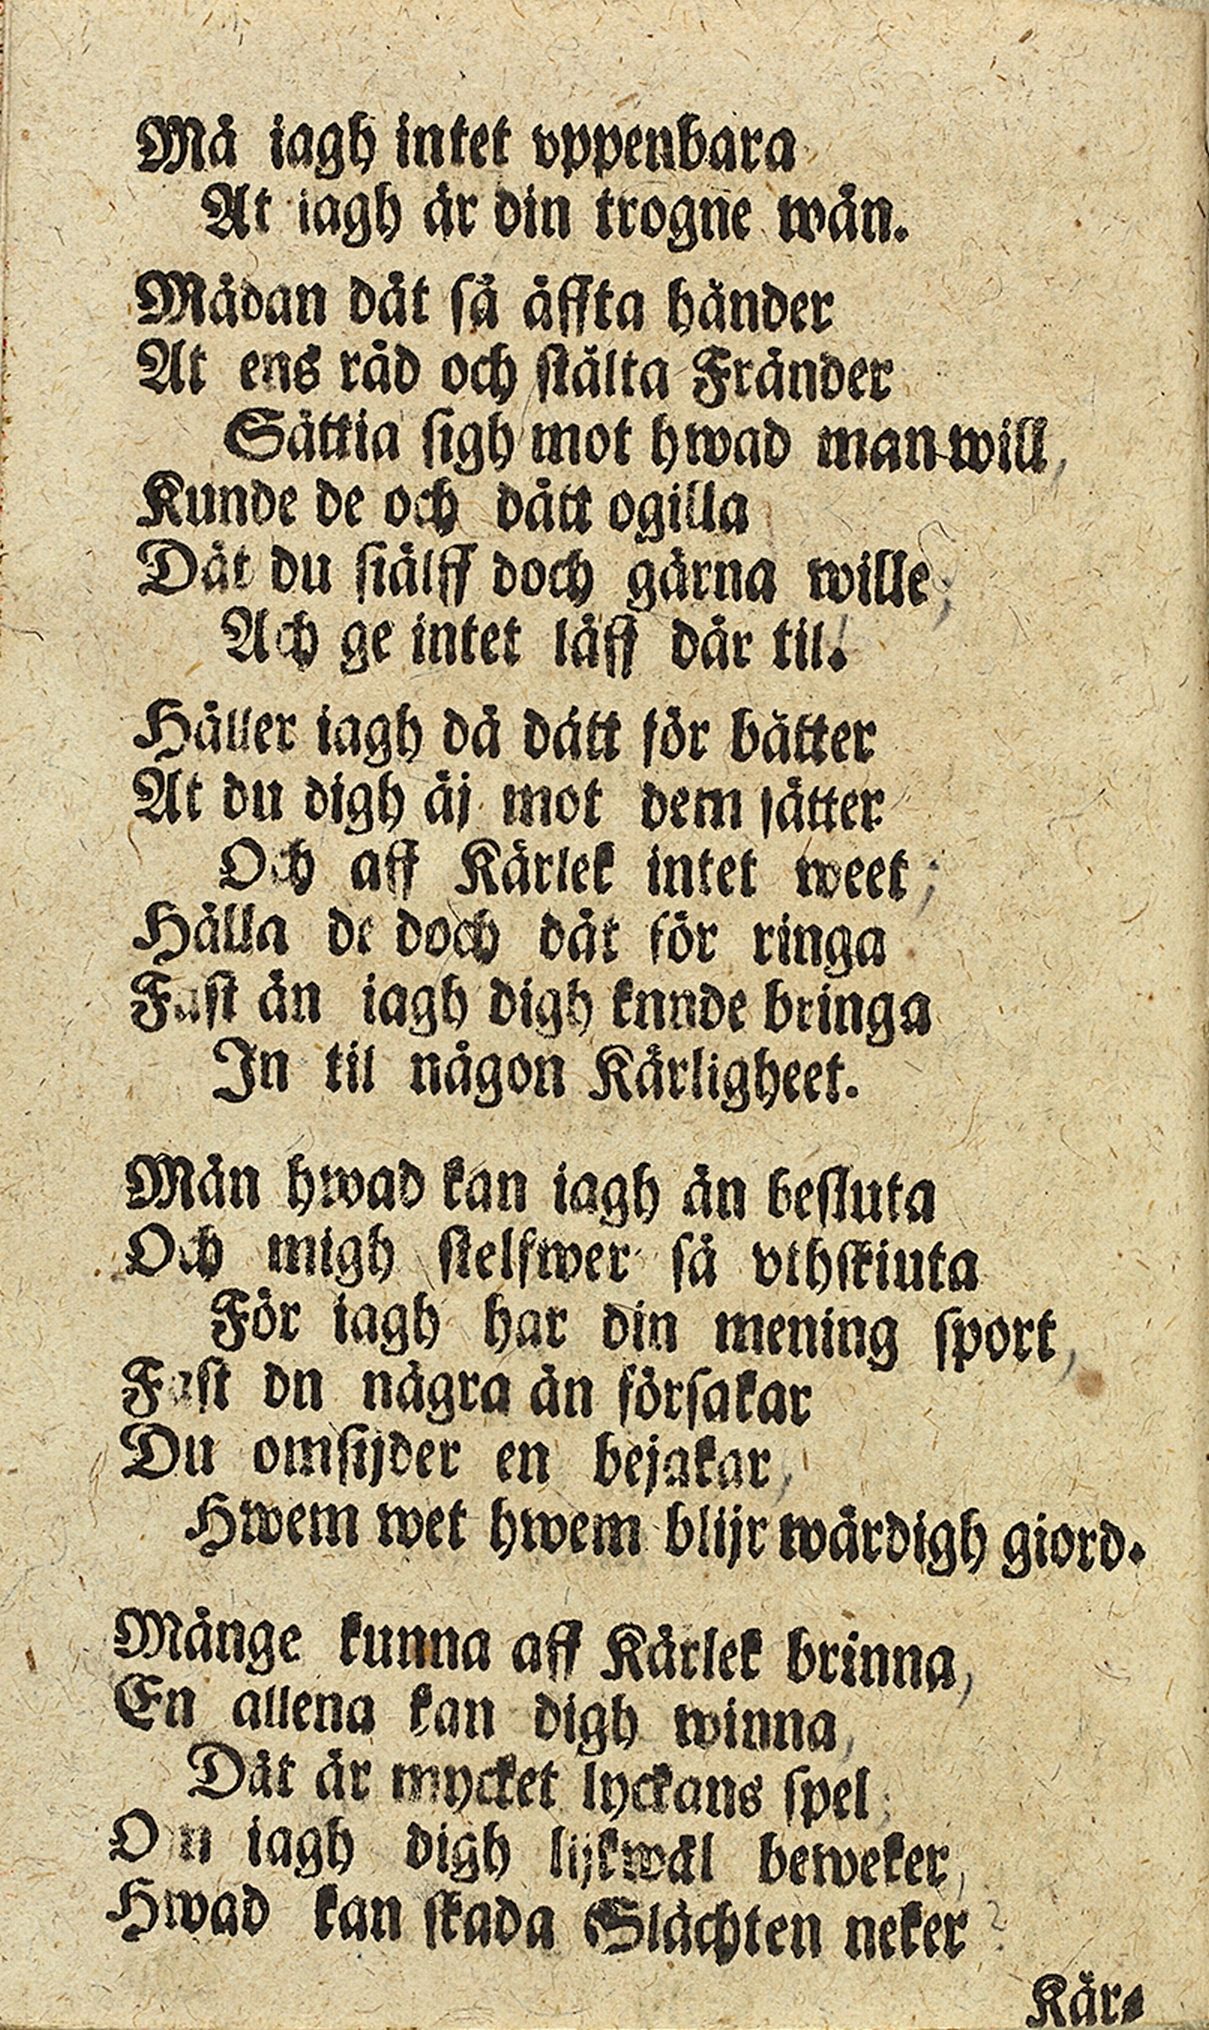 Må iagh intet vppenbara
At iagh är din trogne wän.
Mädan dät så äffta händer
At ens råd och stålta Fränder
Sättia sigh mot hwad man will,
Kunde de och dätt ogilla
Dät du siälff doch gärna wille,
Ach ge intet låff där til.
Håller iagh då dätt för bätter
At du digh äj mot dem sätter
Och aff Kärlek intet weet;
Hålla de doch dät för ringa
Fast än iagh digh knnde bringa
In til någon Kärligheet.
Män hwad kan iagh än besluta
Och migh sielfwer så vthskiuta
För iagh har din mening sport,
Fast dn några än försakar
Du omsijder en bejakar,
Hwem wet hwem blijr wärdigh giord.
Månge kunna aff Kärlek brinna,
En allena kan digh winna,
Dät är mycket lyckans spel;
Om iagh digh lijkwäl beweker,
Hwad kan skada Slächten neker?
Kär-